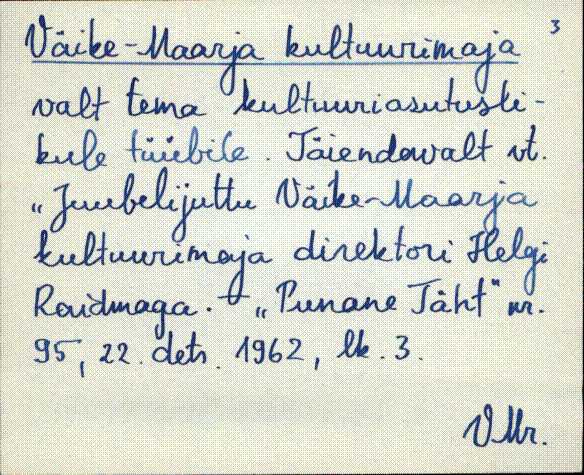 Väike-Maarja kultuurimaja 3
valt tema kultuuriasutusli-
kule tüübile. Täiendavalt vt.
„Juubelijuttu Väike-Maarja
kultuurimaja direktori Helgi
Raidmaga. - „Punane Täht" nr.
95, 22. dets. 1962, lk. 3.
VMr.